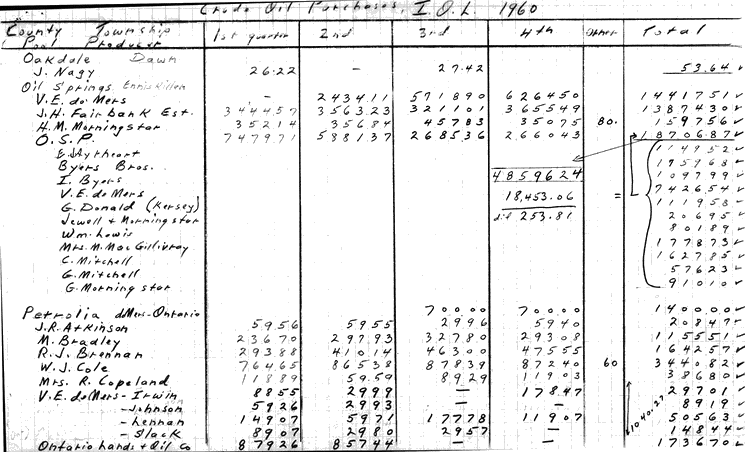 Crude Oil Purchases, I.O.L. 1960
County Township 1st quarter 2nd 3rd 4th Other Total
Pool Producer
Oakdale Dawn
J. Nagy 26.22 – 27.42 53.64
Oil Springs. Enniskillen
V.E. deMers – 2434.11 571890 626450 1441751
J.H. Fairbank Est. 344457 3563.23 321101 365549 1387430
H.M. Morningstar 35214 35684 45783 35075 80. 159756
O.S.P. 747971 588137 268536 266043 1870687
E. Aytheart 114952
Byers Bros. 195968
I. Byers 4859624 109799
V.E. deMers 18,453.06 742654
G. Donald (Kersey) = 111958
Jewell + Morningstar 253.81 20695
Wm. Lewis 80189
Mrs. M. MacGillivray 177873
C. Mitchell 162785
G. Mitchell 57623
G. Morningstar 91010
Petrolia deMers-Ontario 70000 70000 140000
J.R. Atkinson 5956 5955 2996 5940 20847
M. Bradley 23670 297.93 32780 29308 115551
R.J. Brennan 29388 41014 46300 47555 164257
W.J. Cole 76465 86538 87839 87240 60 344082
Mrs. R. Copeland 11889 59.59 8929 11903 38680
V.E. deMers - Irwin 8855 2999 – 17847 29701
- Johnson 5926 2993 – 8919
- Lennan 14907 5971 17778 11907 50563
- Slack 8907 2980 2957 – 14844
Ontario Lands + Oil Co 87926 85744 – – 173670